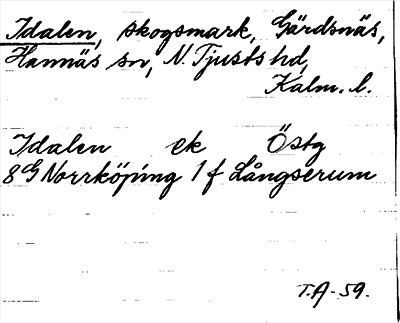 Idalen, skogsmark, Gärdsnäs,
Hannäs sn, N. Tjusts hd,
Kalm. l.
Idalen ek Östg
8G Norrköping 1 f Långserum
T.A-59.